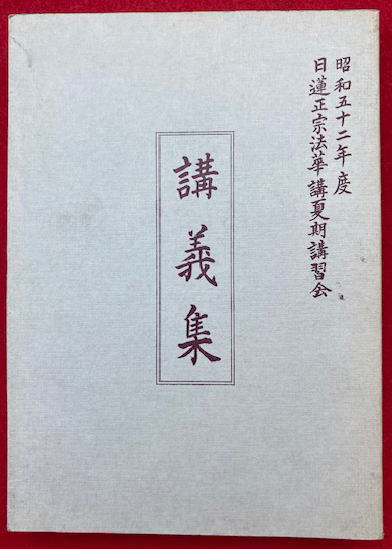 昭和五十二年度
日蓮正宗法華講夏期講習会
講義集